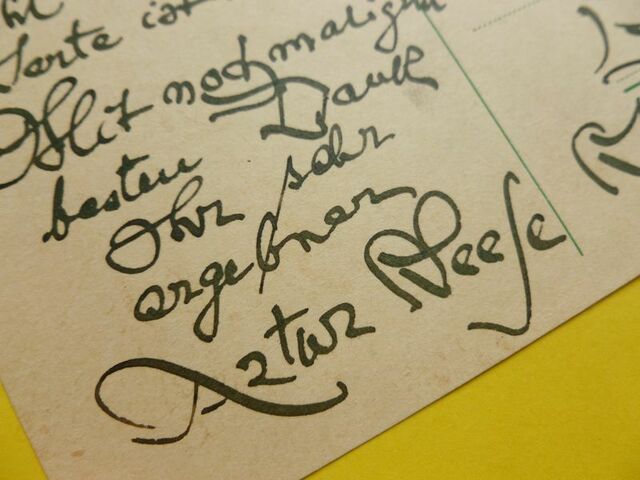 ist
Mit nochmaligem
besten Dank
Ihr sehr
ergebner
Artur Neefe